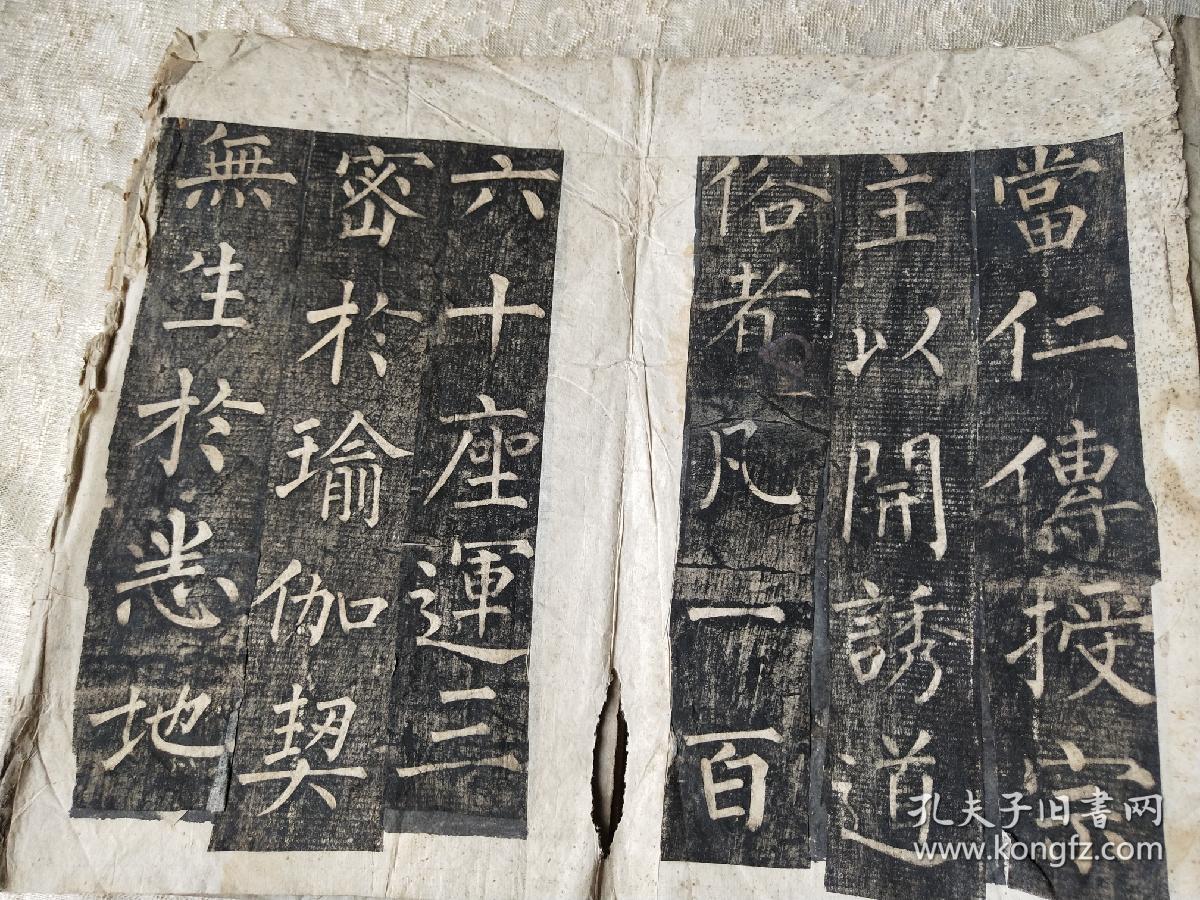 當仁傳授宗
主以開誘道
俗者凡一百
六十座運三
密於瑜伽契
無生於悉地
孔夫子旧书网
www.kongfz.com